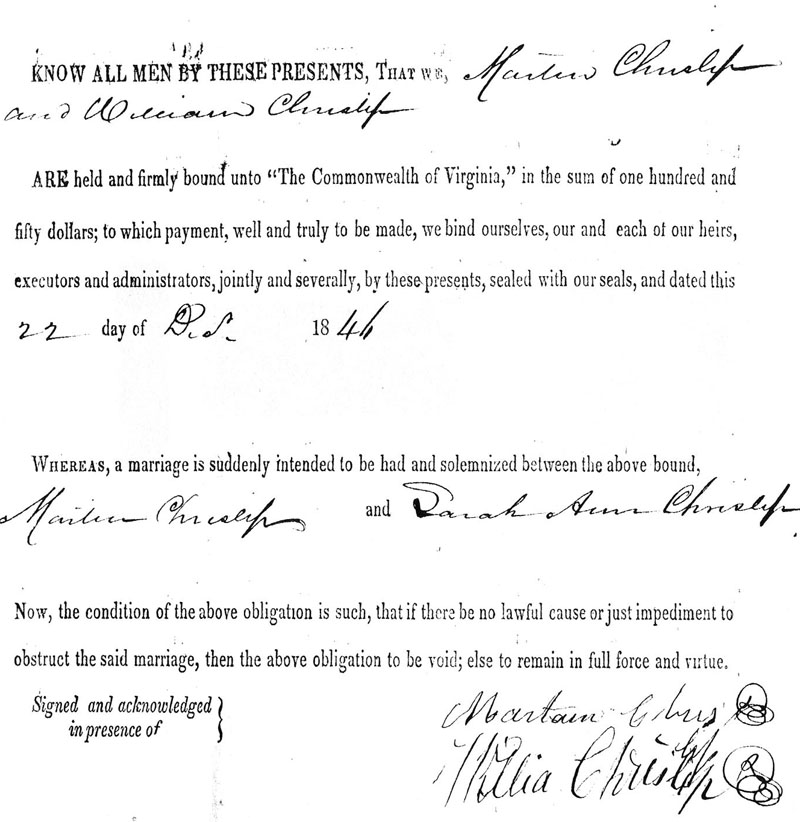 KNOW ALL MEN BY THESE PRESENTS, THAT WE, Martin Chrislip
and William Chrislip
ARE held and firmly bound unto “The Commonwealth of Virginia,” in the sum of one hundred and
fifty dollars; to which payment, well and truly to be made, we bind ourselves, our and each of our heirs,
executors and administrators, jointly and severally, by these presents, sealed with our seals, and dated this
22 day of 1846
WHEREAS, a marriage is suddenly intended to be had and solemnized between the above bound,
Martin Chrislip and Sarah Ann Chrislip
Now, the condition of the above obligation is such, that if there be no lawful cause or just impediment to
obstruct the said marriage, then the above obligation to be void; else to remain in full force and virtue.
Signed and acknowledged
in presence of
Martain Chris
Willia Chrislip